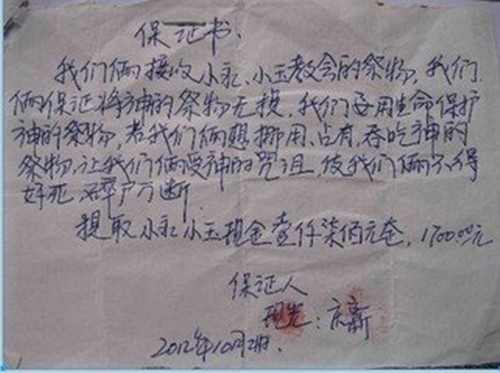 保证书、
我们俩接收小永、小玉教会的祭物,我们
俩保证将神的祭物无损,我们要用生命保护
神的祭物,若我们俩想挪用、占有、吞吃神的
祭物,让我们俩受神的咒诅,使我们俩不得
好死 碎尸万断
提取小永 小玉现金壹仟柒佰元整,1700.00元
保证人
: 庆新
2012年10月